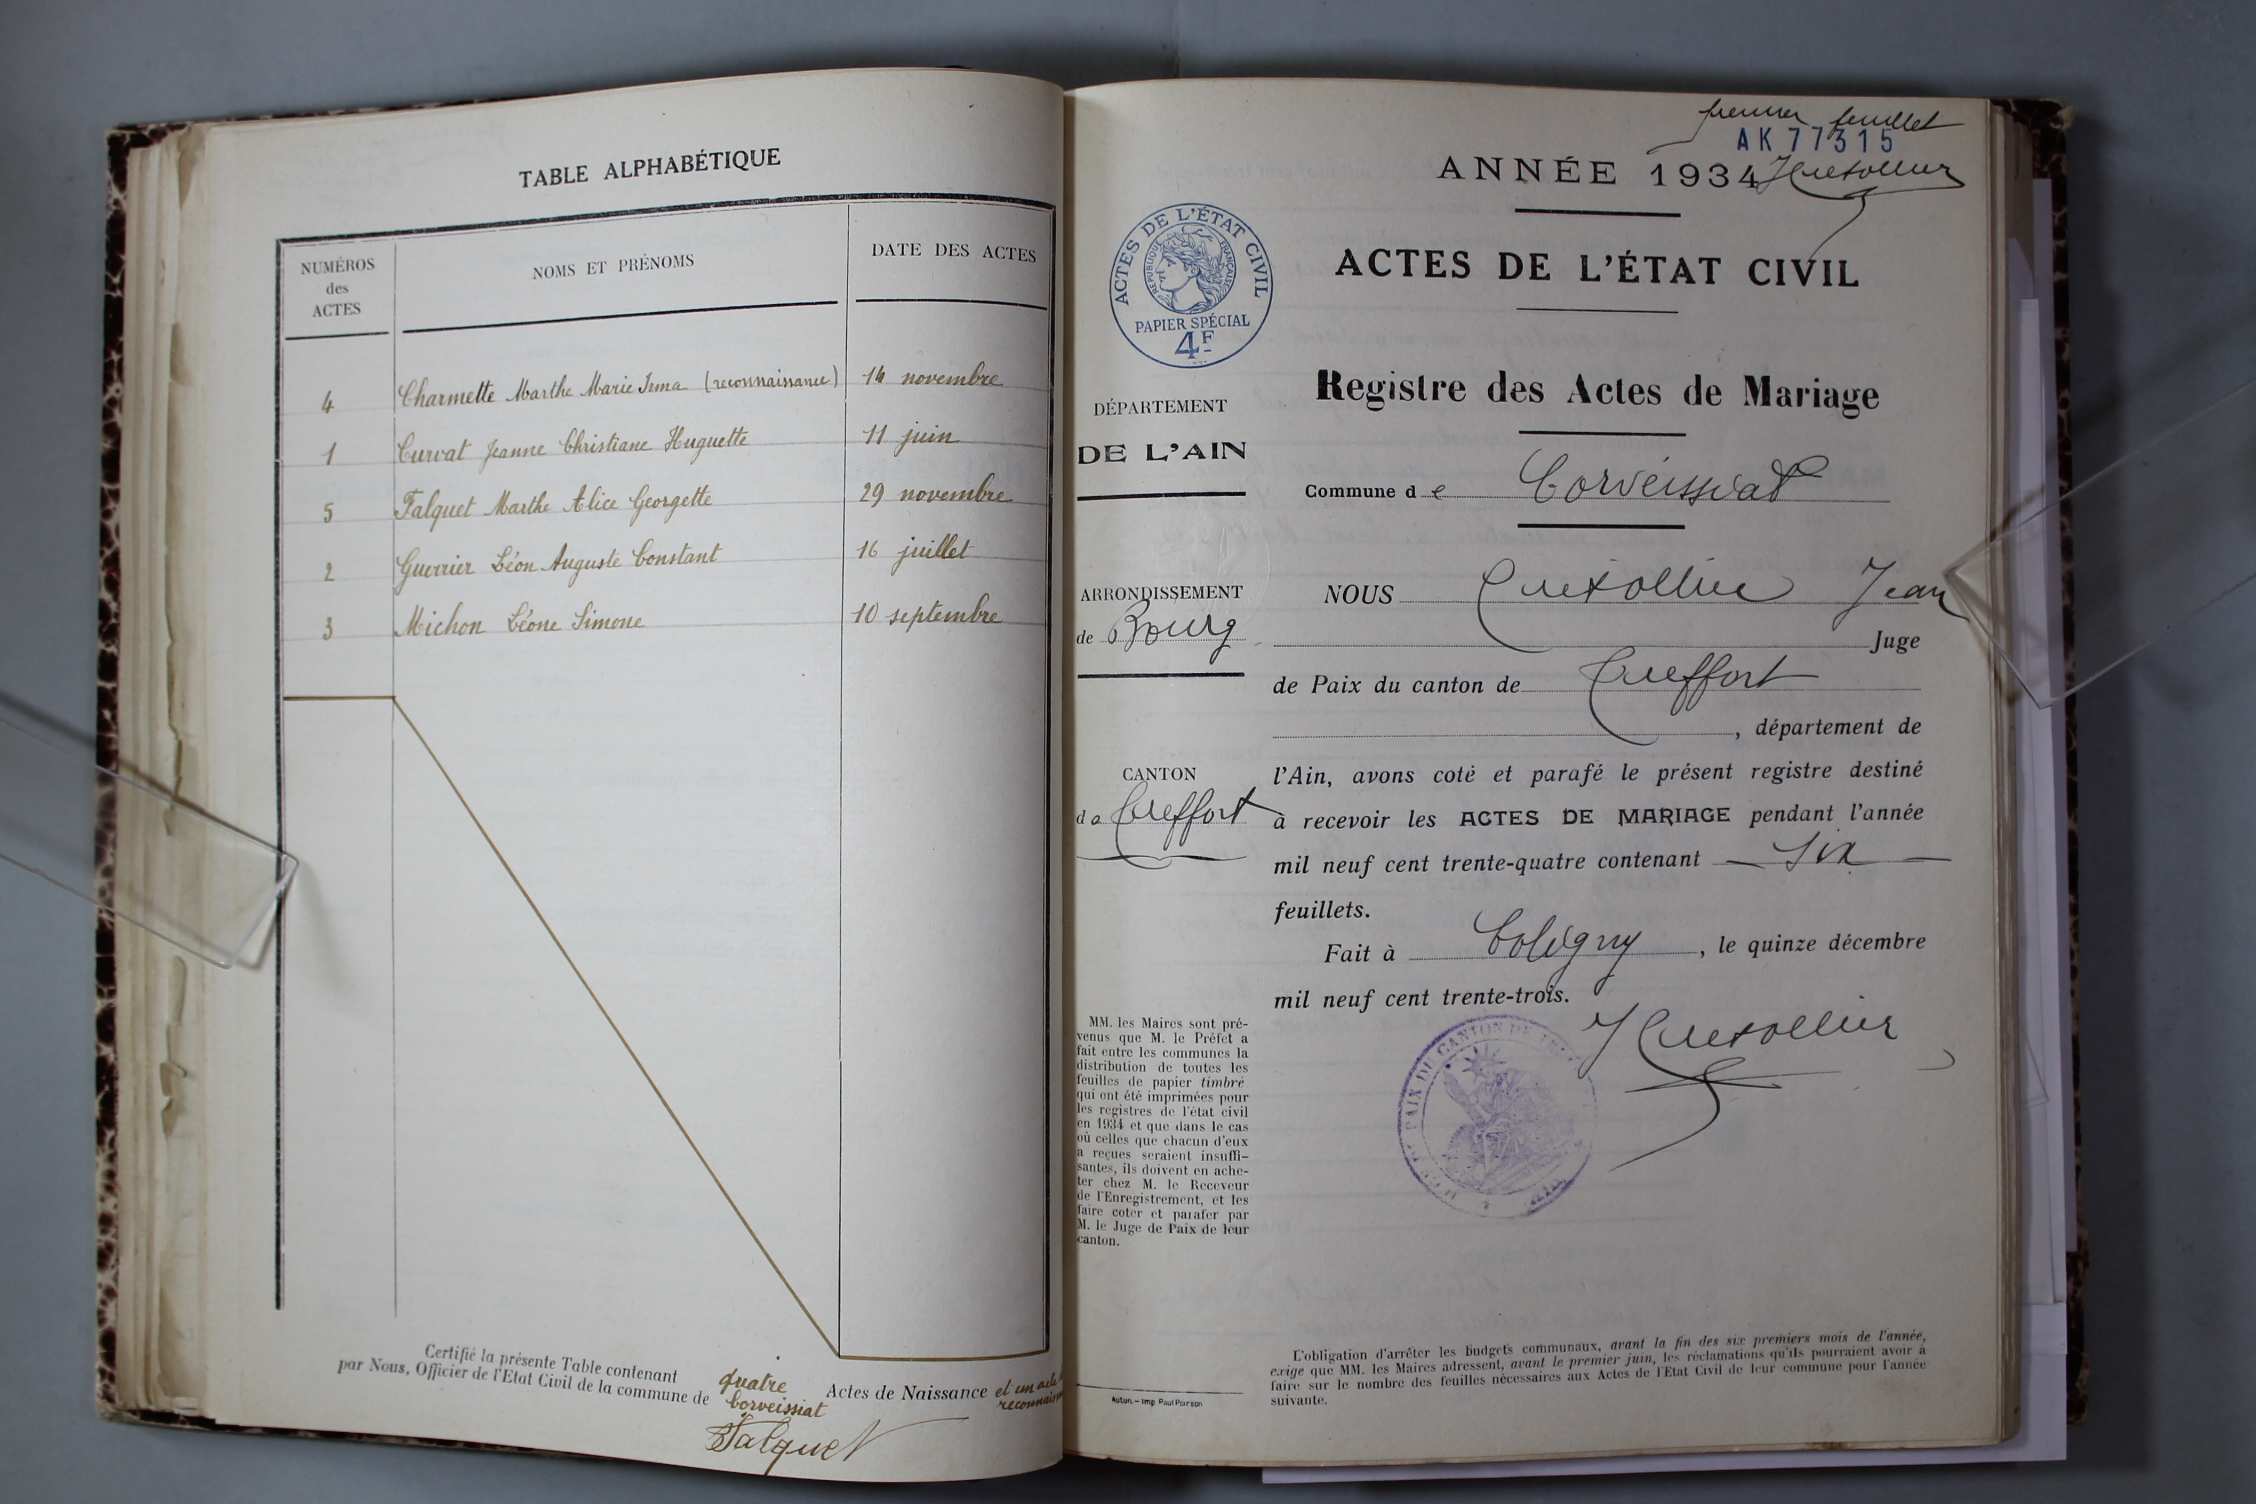 TABLE ALPHABÉTIQUE
NUMÉROS
des
ACTES
NOMS ET PRÉNOMS
DATE DES ACTES
4 Charmette Marthe Marie Irma (reconnaissance) 14 novembre
1 Curvat Jeanne Christiane Huguette 11 juin
5 Falquet Marthe Alice Georgette 29 novembre
2 Guerrier Léon Auguste Constant 16 juillet
3 Michon Léone Simone 10 septembre
Certifié la présente Table contenant quatre Actes de Naissance et un acte
reconnais
par Nous, Officier de l'Etat Civil de la commune de Corveissiat
Falquet
premier feuillet
AK 77315
ANNÉE 1934
ACTES DE L'ÉTAT CIVIL
RÉPUBLIQUE FRANÇAISE
PAPIER SPÉCIAL
4F
ACTES DE L'ÉTAT CIVIL
Registre des Actes de Mariage
DÉPARTEMENT
DE L'AIN
Commune de Corveissiat
ARRONDISSEMENT
de Bourg
CANTON
de Treffort
MM. les Maires sont pré-
venus que M. le Préfet a
fait entre les communes la
distribution de toutes les
feuilles de papier timbré
qui ont été imprimées pour
les registres de l'état civil
en 1934 et que dans le cas
où celles que chacun d'eux
a reçues seraient insuffi-
santes, ils doivent en ache-
ter chez M. le Receveur
de l'Enregistrement, et les
faire coter et parafer par
M. le Juge de Paix de leur
canton.
Auton. — Imp. Paul Poirson
NOUS Jean
Juge
de Paix du canton de Treffort
, département de
l'Ain, avons coté et parafé le présent registre destiné
à recevoir les ACTES DE MARIAGE pendant l'année
mil neuf cent trente-quatre contenant — six —
feuillets.
Fait à Coligny, le quinze décembre
mil neuf cent trente-trois.
PAIX DU CANTON DE
L'obligation d'arrêter les Budgets communaux, avant la fin des six premiers mois de l'année,
exige que MM. les Maires adressent, avant le premier juin, les réclamations qu'ils pourraient avoir à
faire sur le nombre des feuilles nécessaires aux Actes de l'Etat Civil de leur commune pour l'année
suivante.